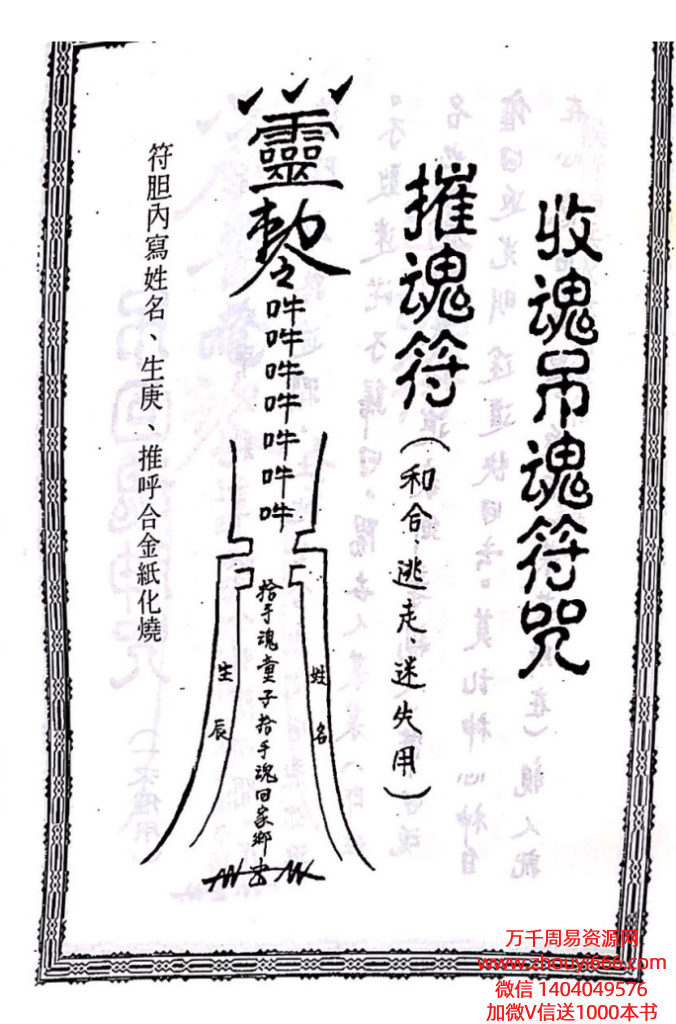 收魂吊魂符咒
摧魂符(和合、逃走、迷失用)
靈
勅令
吽吽吽吽吽吽吽
姓名
拾手魂童子拾手魂回家鄉
生辰
符胆內寫姓名、生庚、推呼合金紙化燒
万千周易资源网
www.zhouyi666.com
微信 1404049576
加微V信送1000本书